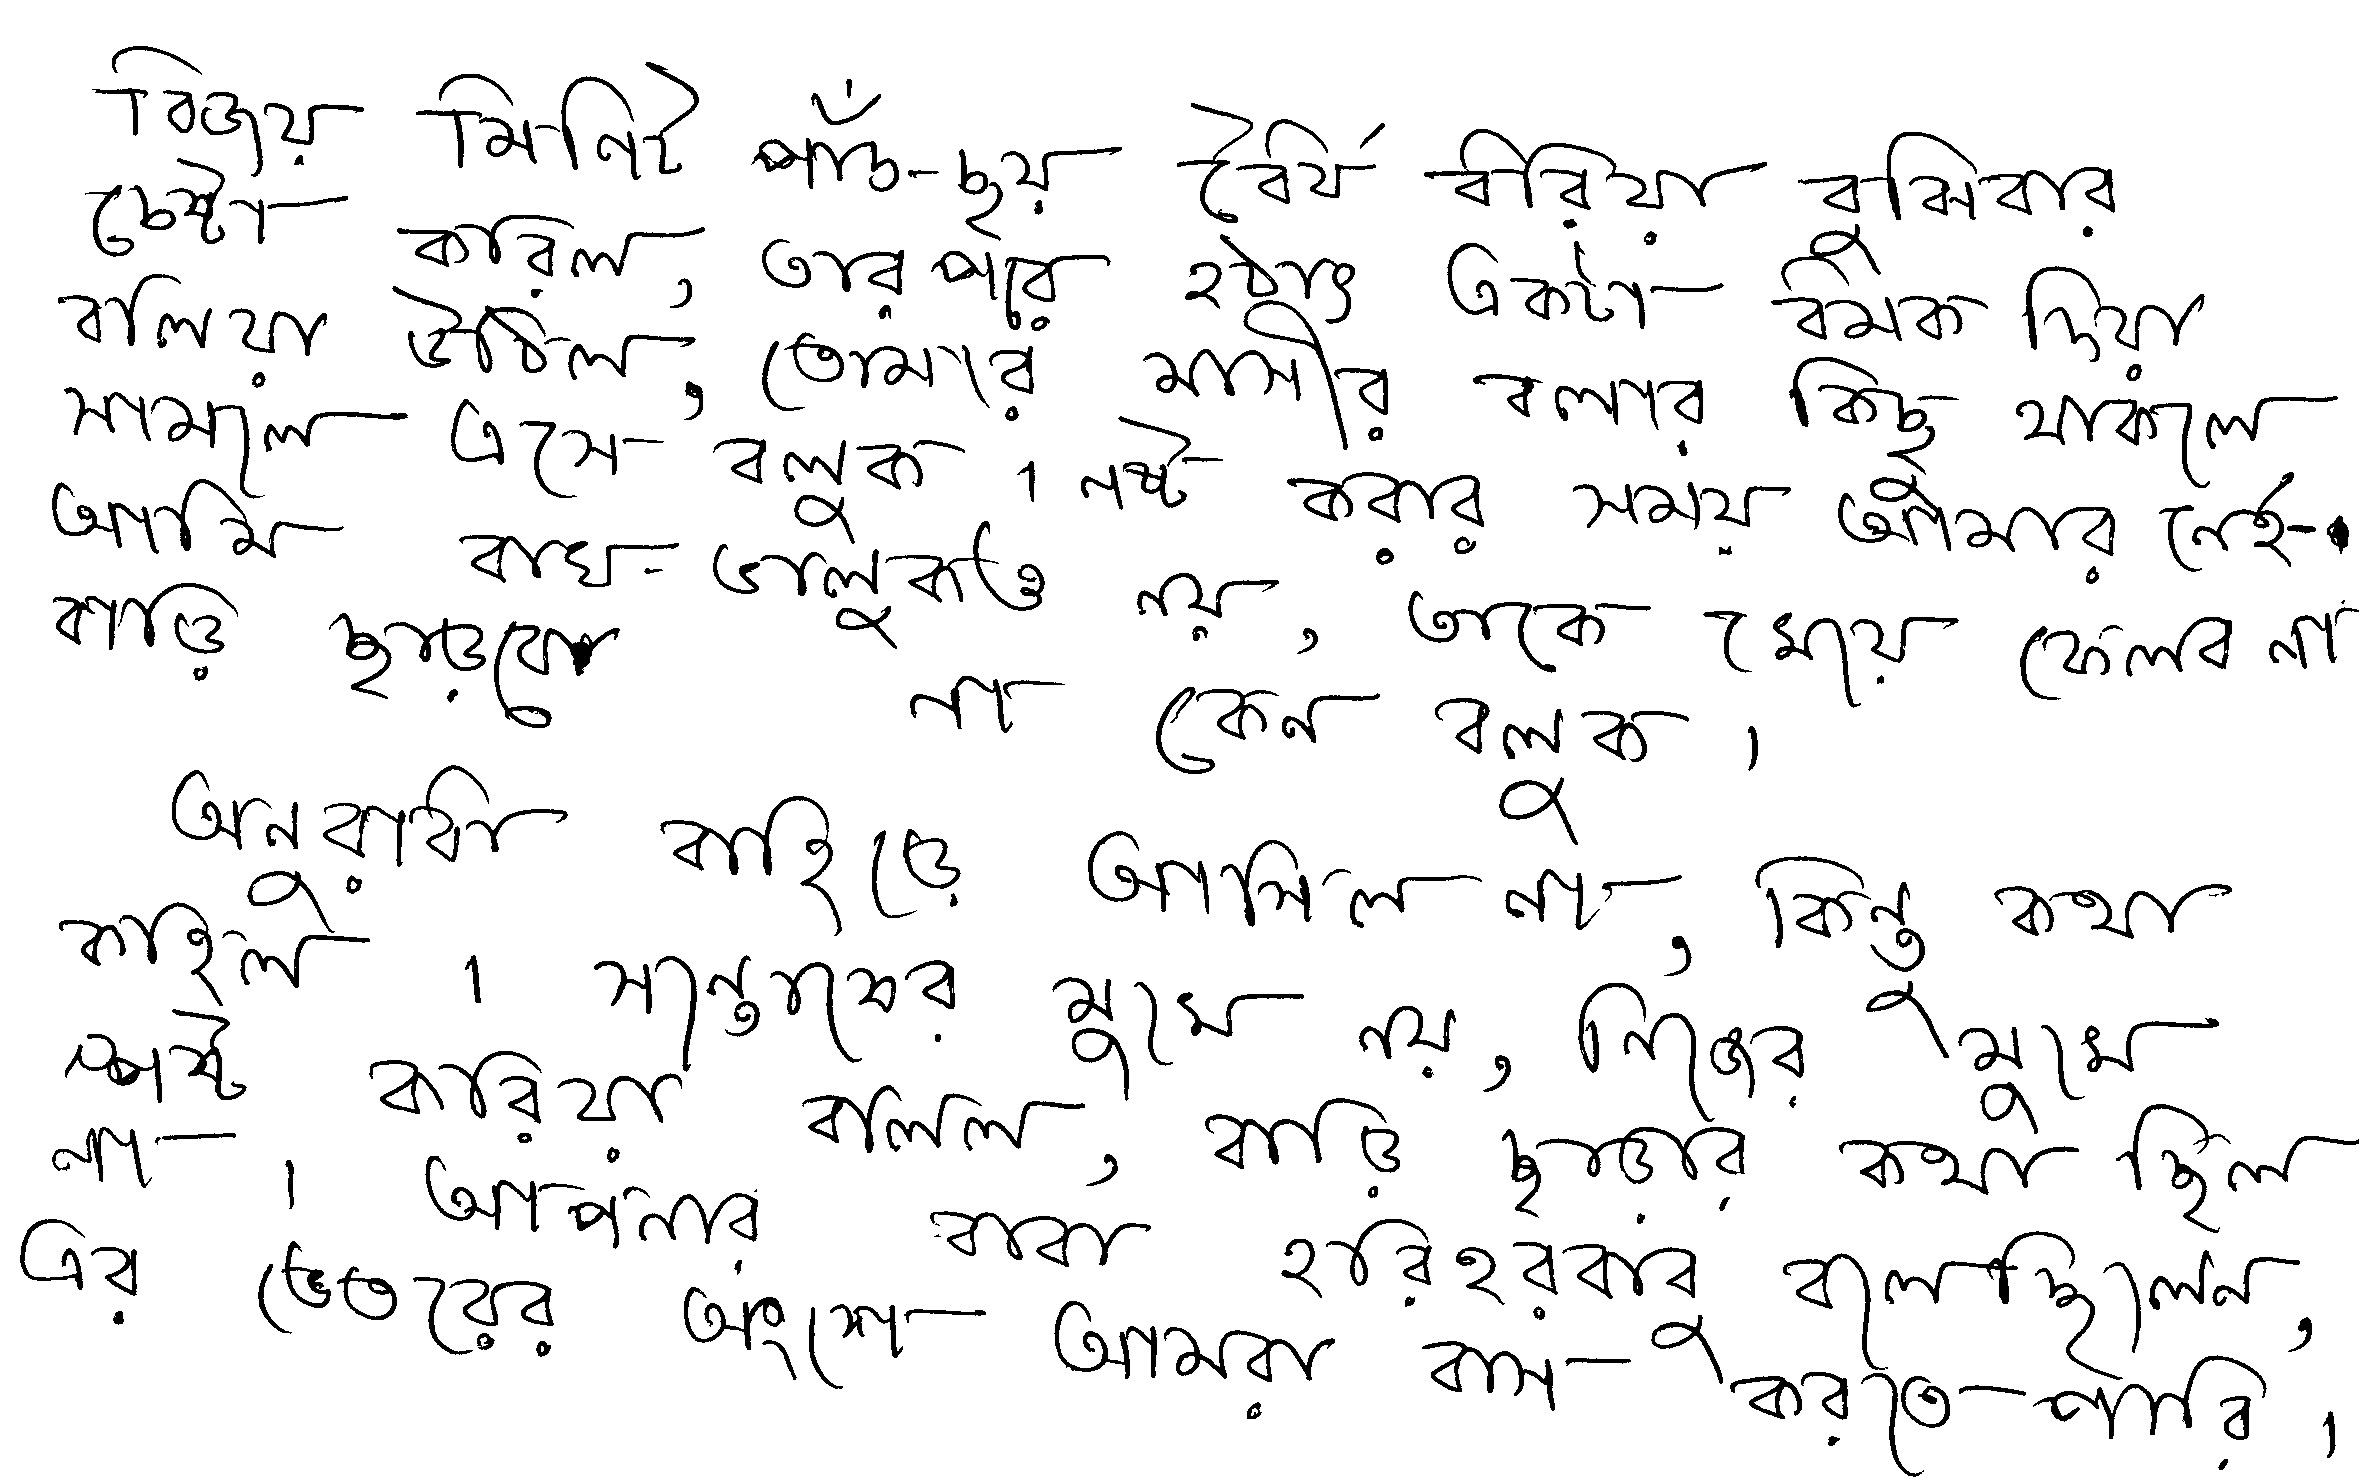 বিজয় মিনিট পাঁচ-ছয় ধৈর্য ধরিয়া বুঝিবার
চেষ্টা করিল, তারপরে হঠাৎ একটা ধমক দিয়া
বলিয়া উঠিল, তোমার মাসীর বলার কিছু থাকলে
সামলে এসে বলুক। নষ্ট করার সময় আমার নেই-
আমি বাঘ-ভালুকও নয়, তাকে খেয়ে ফেলব না
বাড়ি ছাড়বো না কেন বলুক।
অনুরাধা বাহিরে আসিল না, কিন্তু কথা
কহিল। সন্তোষের মুখে নয়, নিজের মুখে
স্পষ্ট করিয়া বলিল, বাড়ি ছাড়ার কথা ছিল
না। আপনার বাবা হরিহরবাবু বলেছিলেন,
এর ভেতরের অংশে আমরা বাস করতে পারি।